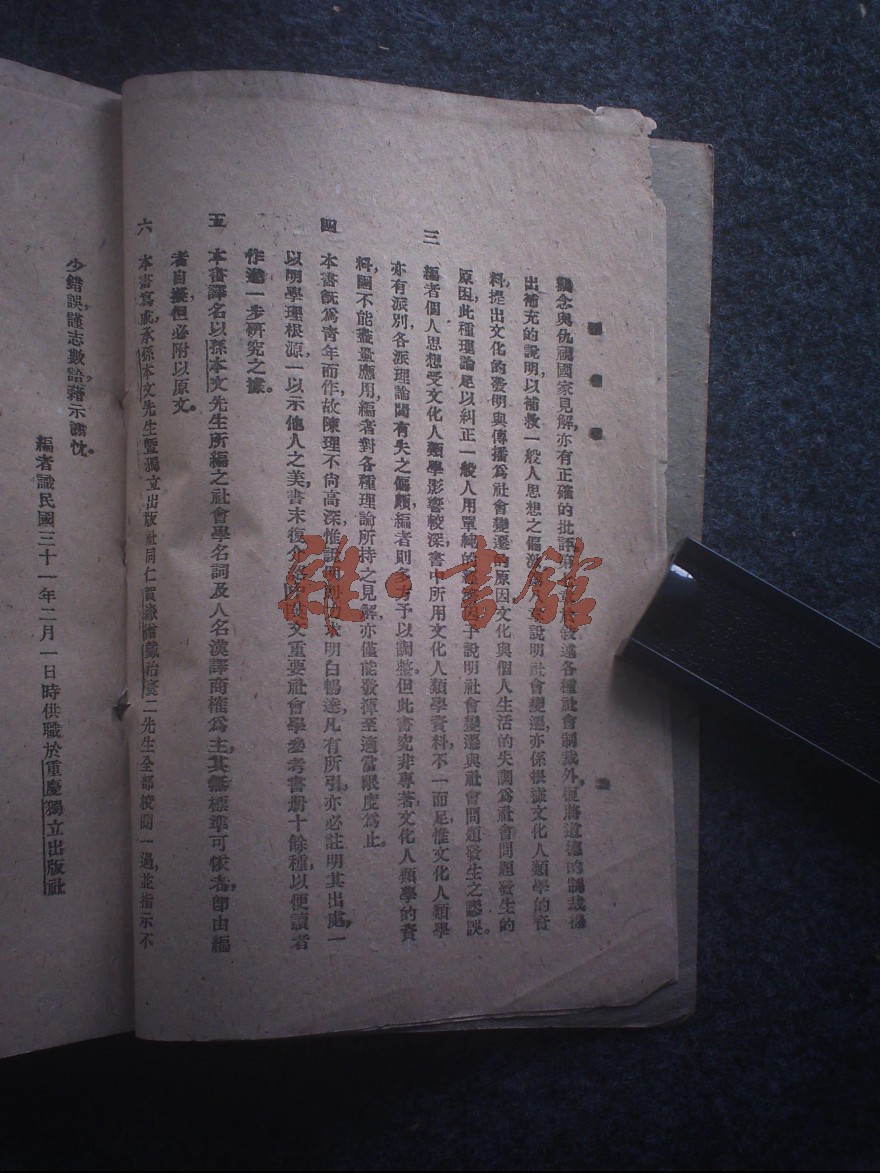 觀念與仇視國家見解，亦有正確的批評。敍述各種社會制裁外，復將道德的制裁提
出補充的說明，以補救一般人思想之偏說明社會變遷，亦係根據文化人類學的資
料，提出文化的發明與傳播爲社會變遷的原因，文化與個人生活的失調爲社會問題發生的
原因，此種理論足以糾正一般人用單純的因子說明社會變遷與社會問題發生之謬誤。
三　編者個人思想受文化人類學影響較深，書中所用文化人類學資料不一而足，惟文化人類學
亦有派別，各派理論間有失之偏頗，編者則多方予以調整。但此書究非專著，文化人類學的資
料，固不能盡量應用，編者對各種理論所持之見解，亦僅能發揮至適當限度爲止。
四　本書旣爲青年而作，故陳理不尙高深，惟說明則力求明白暢達，凡有所引，亦必註明其出處，一
以明學理根源，一以示他人之美，書末復介紹中英文重要社會學參考書册十餘種，以便讀者
作進一步研究之據。
五　本書譯名以孫本文先生所編之社會學名詞及人名漢譯商榷爲主，其無標準可依者，卽由編
者自擬，但必附以原文。
六　本書寫成，承孫本文先生暨獨立出版社同仁先生全部校閱一過，並指示不
少錯誤，謹志數語，藉示謝忱。
編者識民國三十一年二月一日時供職於重慶獨立出版社
雜·書館